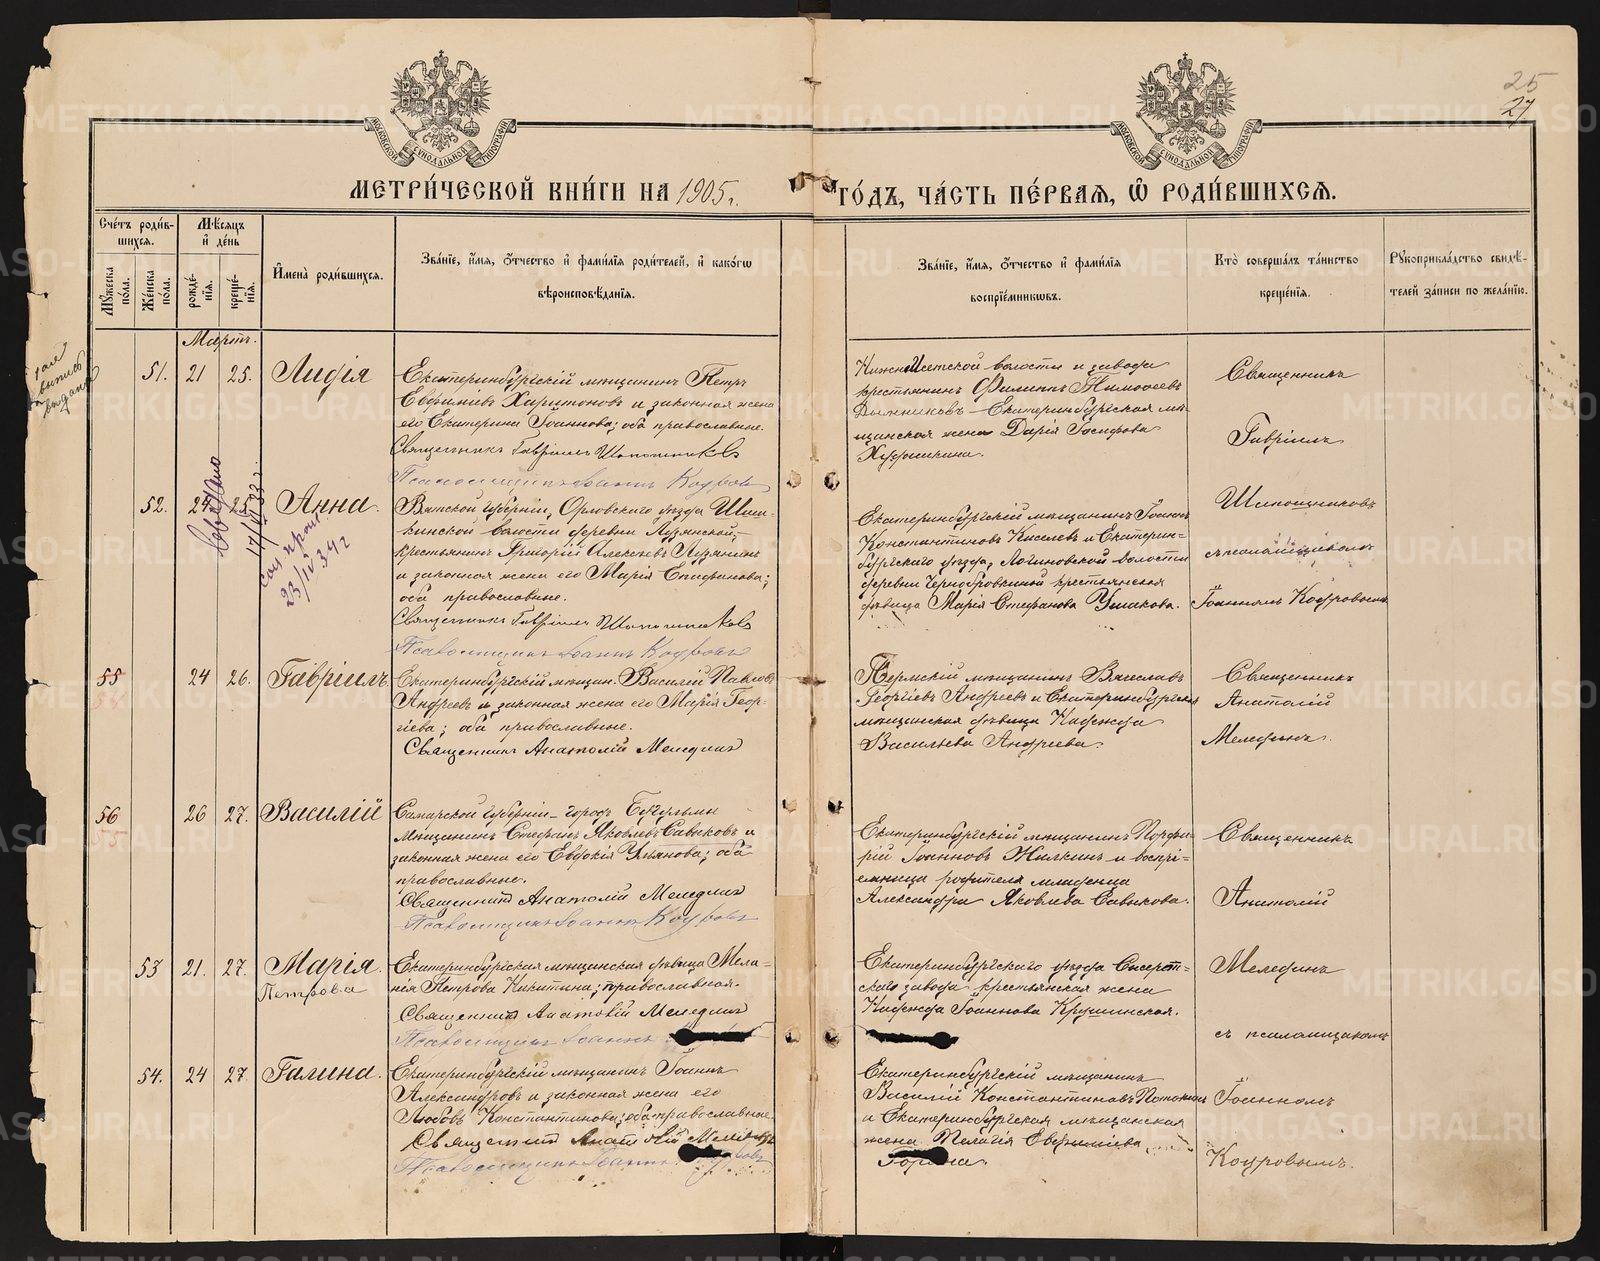 25
27
МЕТРИ́ЧЕСКОЙ КНИ́ГИ НА 1905 г. ГО́ДЪ, ЧА́СТЬ ПЕ́РВАЯ, Ѡ҆ РОДИ́ВШИХСЯ.
Сче́тъ роди́в-
шихся.
Мꙋ́жеска по́ла.
Же́нска по́ла.
Мѣ́сяцъ
и҆ де́нь
рожде́-
нїя.
креще́-
нїя.
И҆мена̀ роди́вшихся.
Зва́нїе, и҆́мя, ѻ҆́тчество и҆ фамилїя роди́телей, и҆ како́гѡ
вѣроисповѣ́данїя.
Зва́нїе, и҆́мя, ѻ҆́тчество и҆ фами́лїя
воспрїе́мникѡвъ.
Кто̀ соверша́лъ та́инство
креще́нїя.
Рꙋкоприкла́дство свидѣ́-
телей за́писи по жела́нїю.
Мартъ.
51. 21 25. Лидія
Екатеринбургскій мѣщанинъ Петръ
Евфимiевъ Харитоновъ и законная жена
его Екатерина Іоаннова; оба православные.
Священникъ Гавріилъ Шапошниковъ
Псаломщикъ Іоаннъ Кодровъ
Нижнеисетской волости и завода
крестьянинъ Филиппъ Тимоѳеевъ
Екатеринбургская мѣ-
щанская жена Дарія Іосифова
Священникъ
Гавріилъ
52. 24 25. Анна.
Вятской губерніи, Орловскаго уѣзда
волости деревни
крестьянинъ Григорій Алексѣевъ
и законная жена его Марія Епифанова;
оба православные.
Священникъ Гавріилъ Шапошниковъ
Псаломщикъ Іоаннъ Кодровъ
Екатеринбургскій мѣщанинъ Іоаннъ
Константиновъ Киселевъ и Екатерин-
бургскаго уѣзда, Логиновской волости
деревни крестьянская
дѣвица Марія Стефанова Ушакова.
Шапошниковъ
съ псаломщикомъ
Іоанномъ Кодровымъ
23/IV 34 г
55 24 26. Гавріилъ.
Екатеринбургскій мѣщан. Василій Павловъ
Андреевъ и законная жена его Марія Геор-
гіева; оба православные.
Священникъ Анатолій Мелединъ
Пермскій мѣщанинъ Вячеславъ
Георгіевъ Андреевъ и Екатеринбургская
мѣщанская дѣвица Надежда
Васильева Андреева.
Священникъ
Анатолій
Мелединъ.
56
55
26 27. Василій
Самарской губерніи городъ Бугульмы
мѣщанинъ Стефанъ Яковлевъ Савиковъ и
законная жена его Евдокія Ульянова; оба
православные.
Священникъ Анатолій Мелединъ
Псаломщикъ Іоаннъ Кодровъ
Екатеринбургскій мѣщанинъ Порфи-
рій Іоанновъ Жилкинъ и воспрі-
емница родителя младенца
Александра Яковлева Савикова.
Священникъ
Анатолій
53 21. 27. Марія.
Петрова
Екатеринбургская мѣщанская дѣвица Мела-
нія Петрова Никитина; православная.
Священникъ Анатолій Мелединъ
Псаломщикъ Іоаннъ
Екатеринбургскаго уѣзда Сысерт-
скаго завода крестьянская жена
Надежда Іоаннова Крушинская.
Мелединъ
съ псаломщикомъ
54. 24 27 Галина.
Екатеринбургскій мѣщанинъ Іоаннъ
Александровъ и законная жена его
Любовь Константинова; оба православные.
Священникъ Анатолій Мелединъ
Псаломщикъ Іоаннъ
Екатеринбургскій мѣщанинъ
Василій Константиновъ
и Екатеринбургская мѣщанская
жена Пелагія Евфиміева
Іоанномъ
Кодровымъ.
METRIKI.GASO-URAL.RU